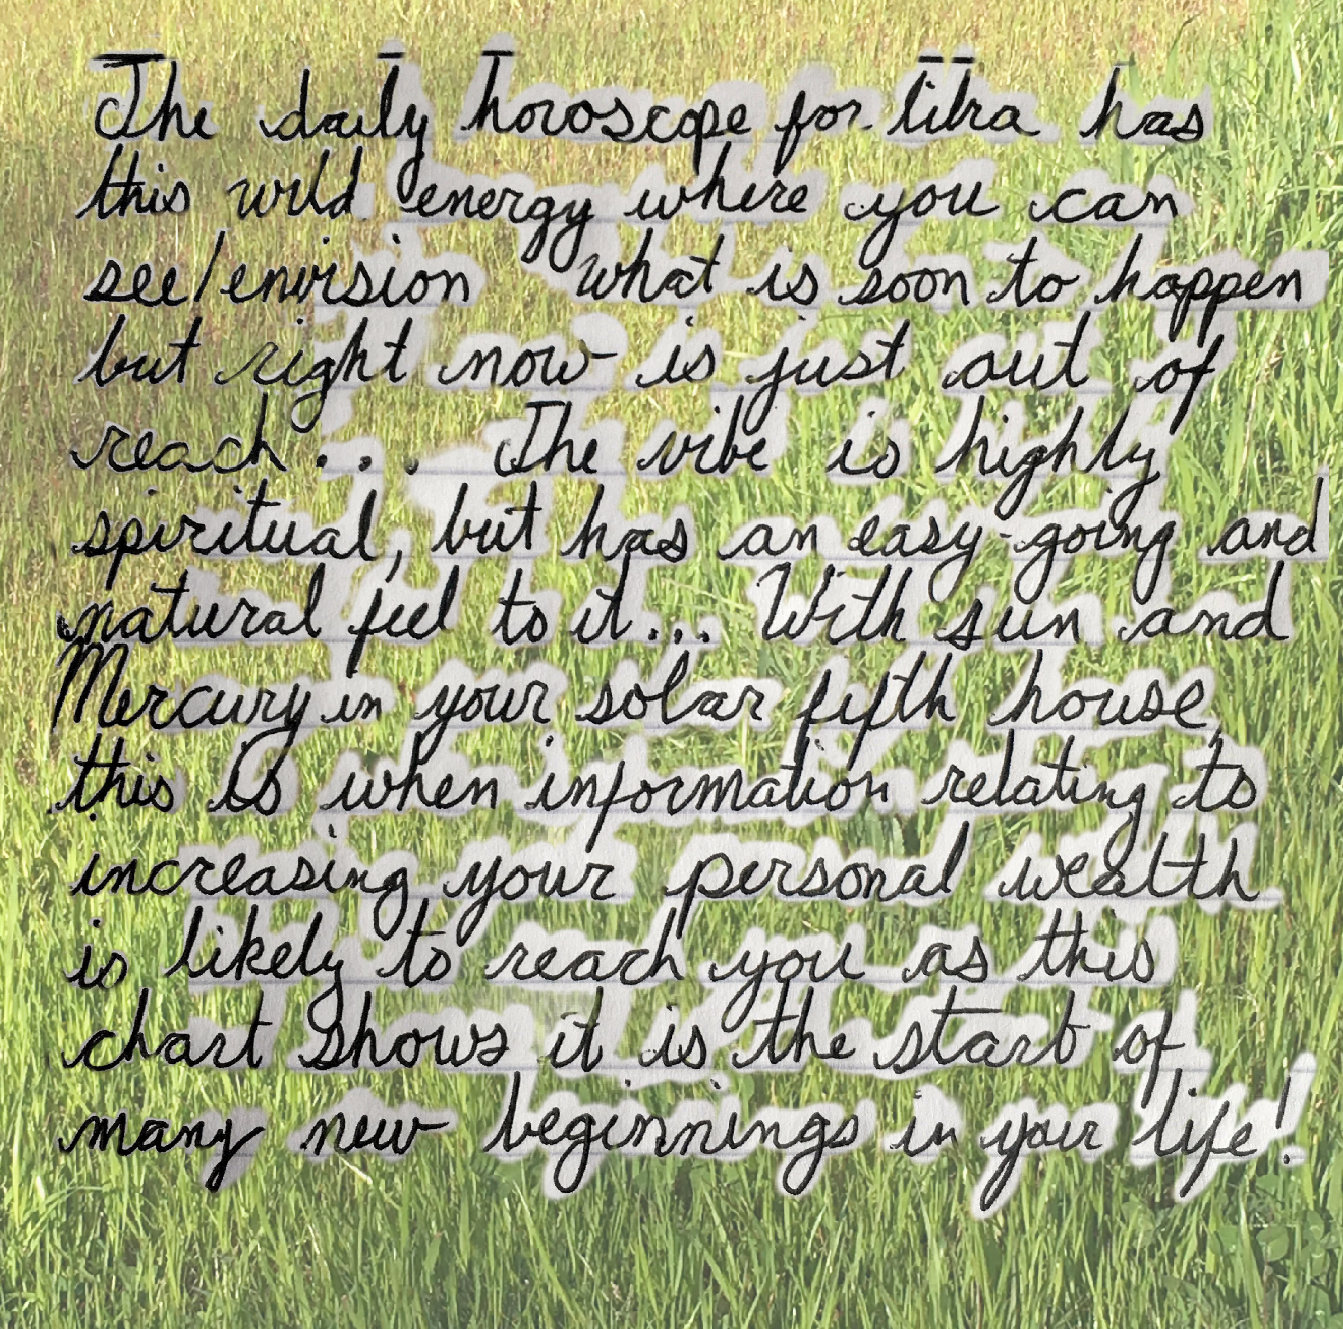 The daily horoscope for libra has
this wild energy where you can
see/envision what is soon to happen
but right now is just out of
reach... The vibe is highly
spiritual, but has an easy-going and
natural feel to it... With sun and
Mercury in your solar fifth house,
this is when information relating to
increasing your personal wealth
is likely to reach you as this
chart shows it is the start of
many new beginnings in your life!